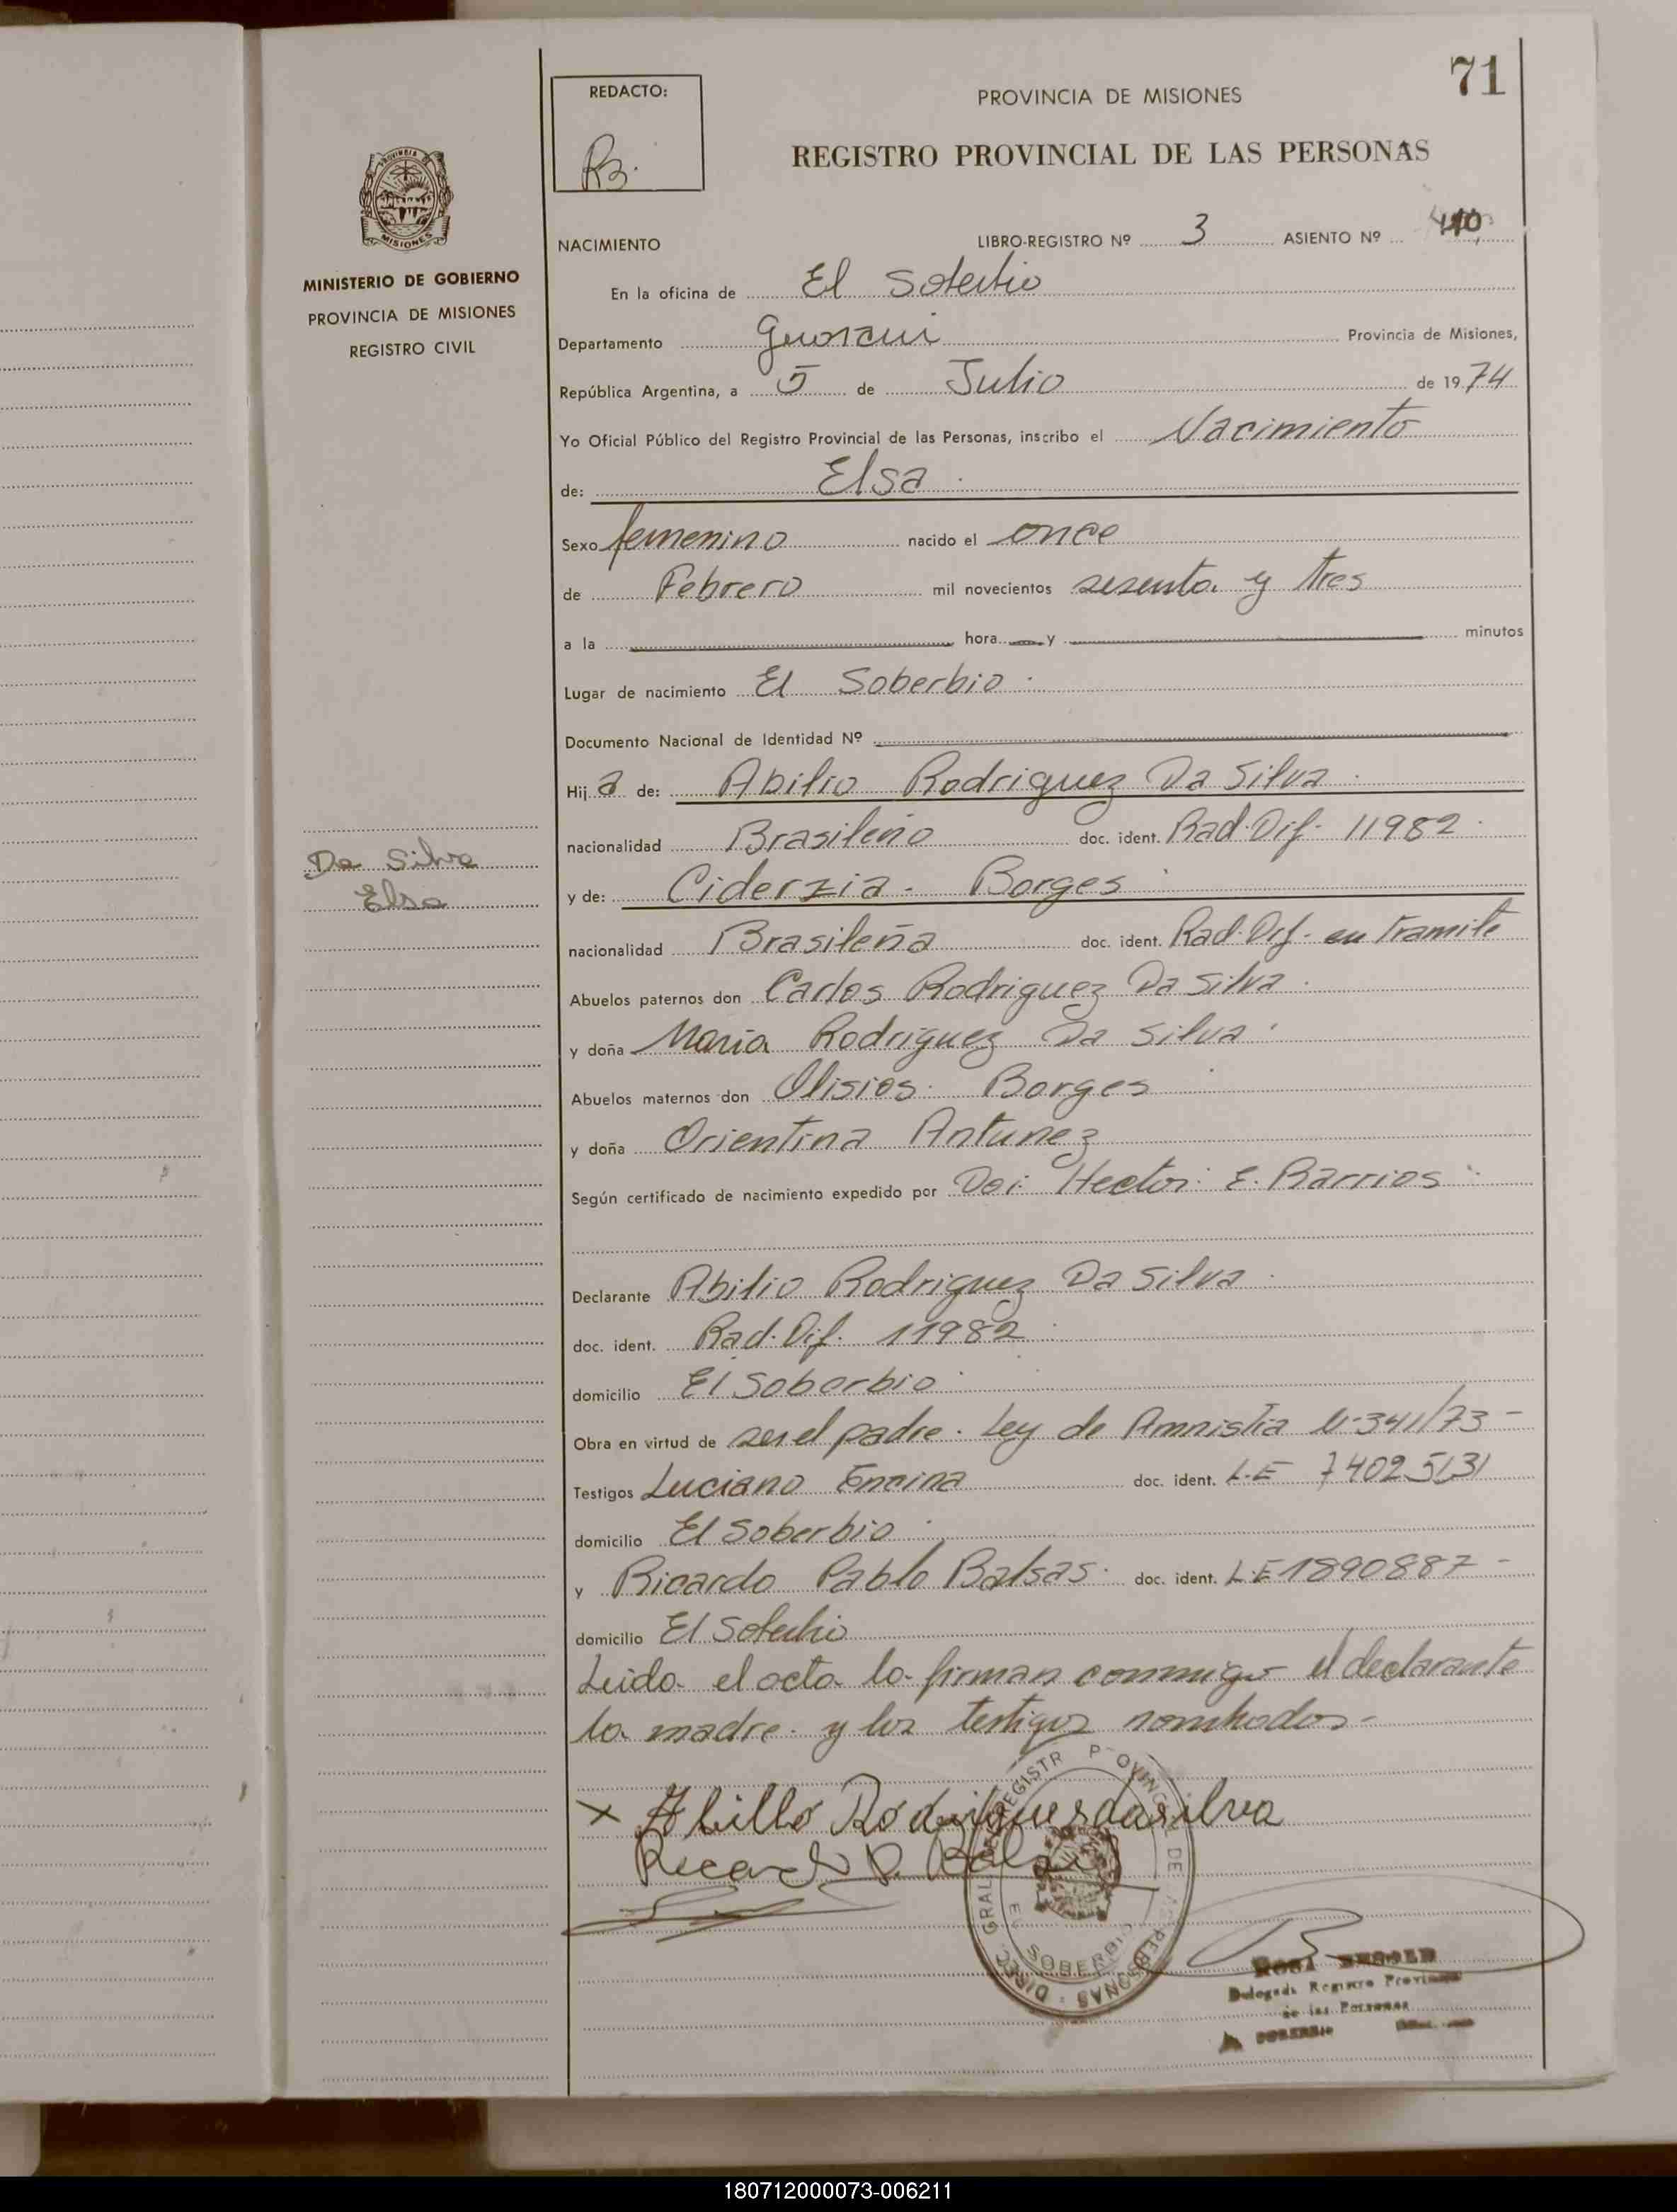 71
REDACTO:
PROVINCIA DE MISIONES
REGISTRO PROVINCIAL DE LAS PERSONAS
MISIONES
MINISTERIO DE GOBIERNO
PROVINCIA DE MISIONES
REGISTRO CIVIL
NACIMIENTO LIBRO-REGISTRO Nº 3 ASIENTO Nº
En la oficina de El Soberbio
Departamento Guarani Provincia de Misiones,
República Argentina, a 5 de Julio de 1974
Yo Oficial Público del Registro Provincial de las Personas, inscribo el Nacimiento
de: Elsa
Sexo femenino nacido el once
de Febrero mil novecientos sesenta y tres
a la hora y minutos
Lugar de nacimiento El Soberbio
Documento Nacional de Identidad Nº
Hija de: Abilio Rodriguez Da Silva
nacionalidad Brasileño doc. ident. Rad. Dif. 11982
Da Silva
Elsa
y de: Ciderzia Borges
nacionalidad Brasileña doc. ident. Rad. Dif. en tramite
Abuelos paternos don Carlos Rodriguez Da Silva
y doña Maria Rodriguez Da Silva
Abuelos maternos don Olisios Borges
y doña Orientina Antunez
Según certificado de nacimiento expedido por Hector E. Barrios
Declarante Abilio Rodriguez Da Silva
doc. ident. Rad. Dif. 11982
domicilio El Soberbio
Obra en virtud de ser el padre. Ley de Amnistia N-341/73 -
Testigos Luciano Encina doc. ident. L.E
domicilio El Soberbio
y Ricardo Pablo Balsas doc. ident. L.E 1890887 -
domicilio El Soberbio
Leida el acta la firman conmigo el declarante
la madre y los testigos nombrados -
x Abillo Rodriguesdasilva
Ricardo P. Balsas
SOBERBIO
PERSONAS
Delegada Registro Provincial
de las Personas
180712000073-006211